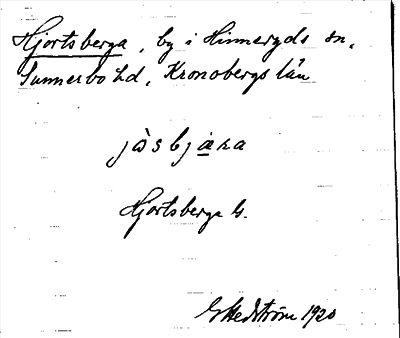 Hjortsberga, by i Hinneryds sn,
Sunnerbo hd, Kronobergs län
jòsbjära
Hjortsberga G.
G Hedström 1920